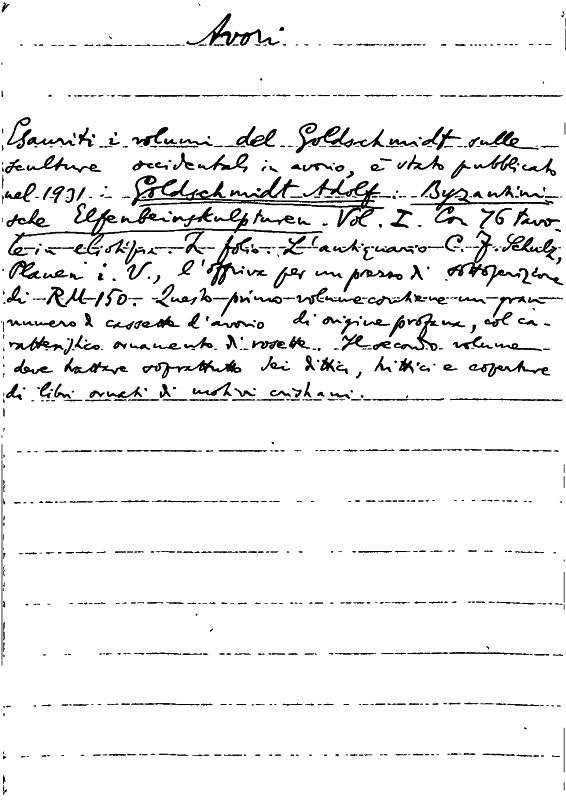 Avori
Esauriti i volumi del Goldschmidt sulle
sculture occidentali in avorio, è stato pubblicato
nel 1931: Goldschmidt Adolf: Byzantini-
sche Elfenbeinskulpturen. Vol. I. Con 76 tavo-
le in eliotipia. In folio. L'antiquario C. F. Schulz,
Plauen i. V., l'offriva per un prezzo di sottoscrizione
di RM 150. Questo primo volume contiene un gran
numero di cassette d'avorio di origine profana, col ca-
ratteristico ornamento di rosette. Il secondo volume
deve trattare soprattutto dei dittici, trittici e coperture
di libri ornati di motivi cristiani.